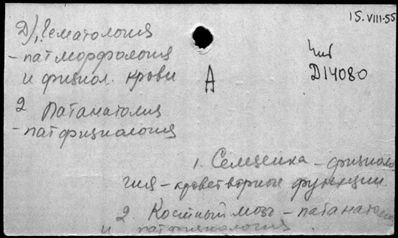 15.VIII-55
Д) Гематология
- патморфология
и физиол. крови
Шб
Д14080
А
2 Патанатомия
- патфизиология
1. Селезенка - физиоло
гия - кроветворной функции
2. Костный мозг - патанатом
и патфизиология